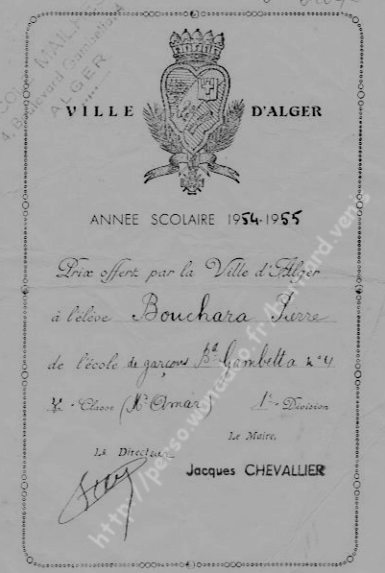 4, Boulevard Gambetta
ALGER
VILLE D'ALGER
ANNEE SCOLAIRE 1954-1955
Prix offert par la Ville d'Alger
à l'élève Bouchara Pierre
de l'école de garçons Bd Gambetta n° 4
Classe (Mr Amar) 1e Division
Le Maire,
Le Directeur
Jacques CHEVALLIER
http://perso.wanadoo.fr/bernard.venis